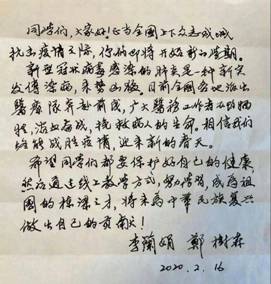 同学们，大家好！正当全國上下众志成城
抗击疫情之际，你们即将开始新的学期。
新型冠状病毒感染的肺炎是一种新突
发传染病，来势凶猛，目前全國各地派出
醫療隊奔赴前线，广大醫務工作者不怕牺
牲，浴血奋战，挽救病人的生命。相信我们
终能战胜疫情，迎来新的春天。
希望同学们都要保护好自己的健康，
积极通过线上教学方式，努力学習，成为祖
國的栋梁之才，將来为中華民族复兴
做出自己的贡献！
李蘭娟 鄭樹森
2020.2.16